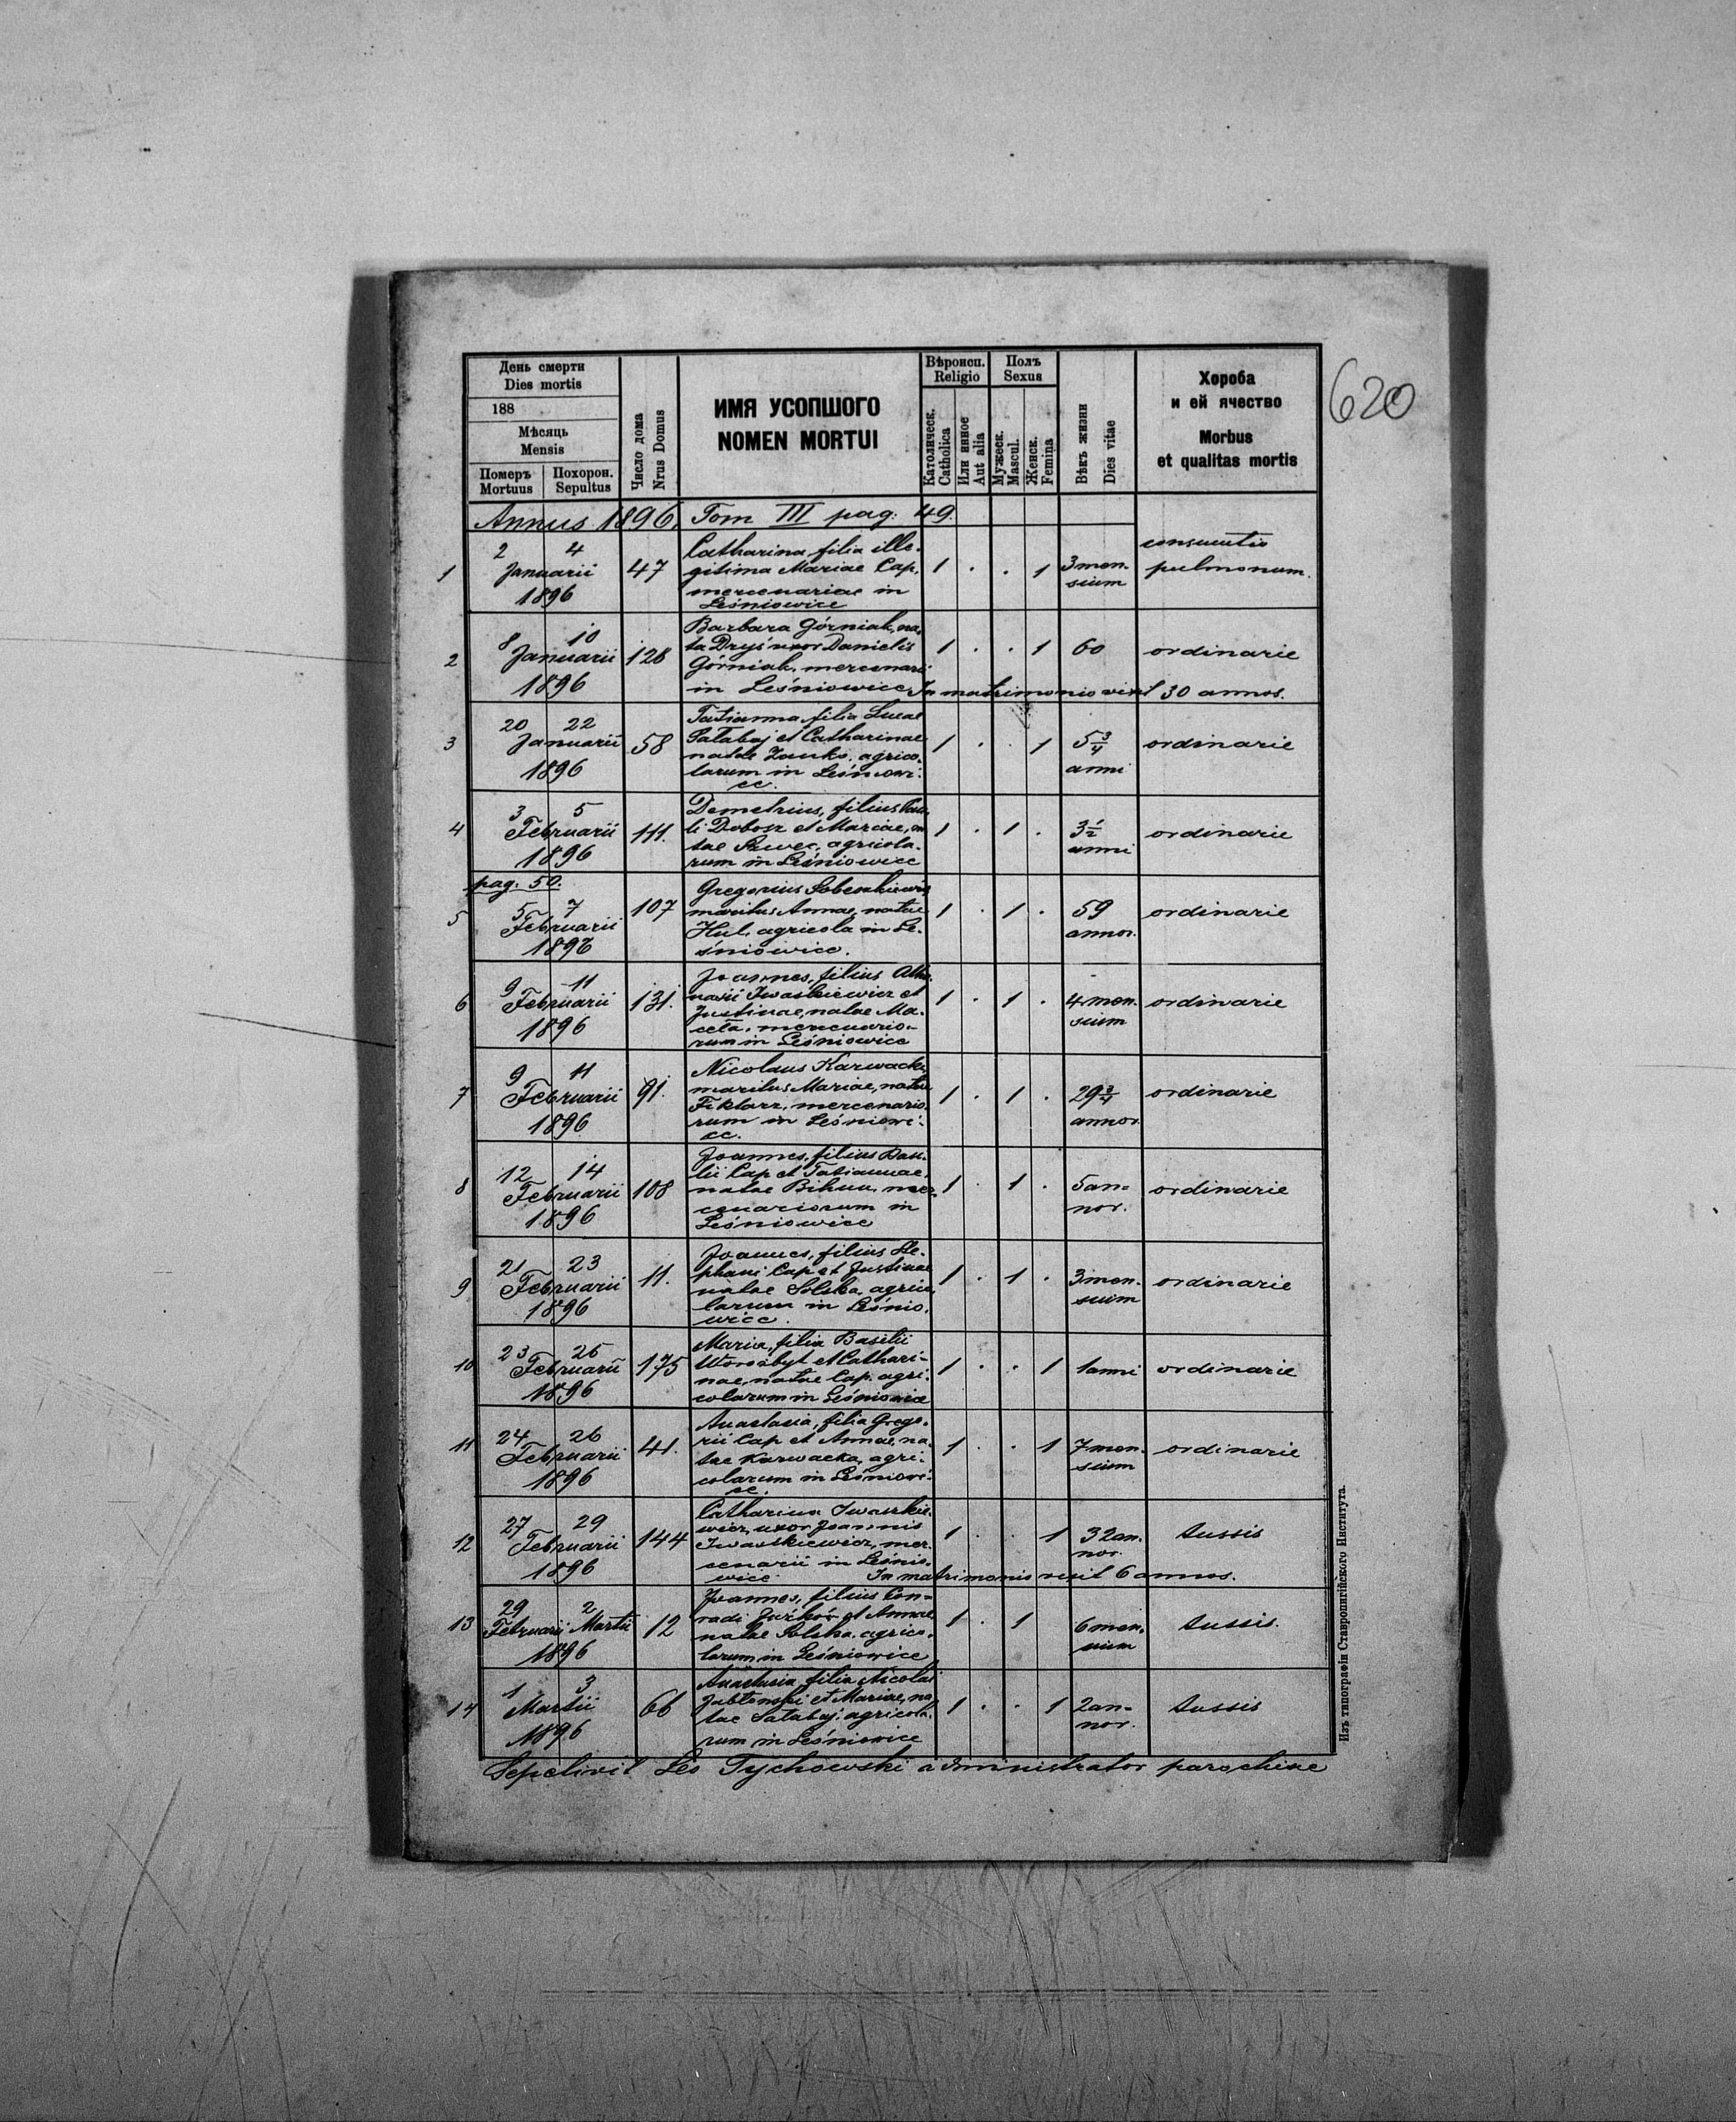 620
День смерти
Dies mortis
188
Мѣсяць
Mensis
Померъ
Mortuus
Похорон.
Sepultus
Число дома
Nrus Domus
ИМЯ УСОПШОГО
NOMEN MORTUI
Вѣроисп.
Religio
Католическ.
Catholica
Или инное
Aut alia
Полъ
Sexus
Мужеск.
Mascul.
Женск.
Femina
Вѣкъ жизни
Dies vitae
Хороба
и ей ячество
Morbus
et qualitas mortis
Annus 1896. Tom III pag. 49.
1
2 4
Januarii
1896
47
Catharina filia ille-
gitima Mariae Cap,
mercenariae in
Leśniowice
1 . . 1
3 men-
sium
pulmonum.
2
8 10
Januarii
1896
128
Barbara Górniak, na-
ta Dryś uxor Danielis
Górniak, mercenarii
in Leśniowice. In matrimonio vixit 30 annos.
1 . . 1
60
ordinarie
3
20 22
Januarii
1896
58
Tatianna filia Lucae
Sałabaj et Catharinae
natae Zanko, agrico-
larum in Leśniowi-
ce.
1 . . 1
5 3/4
anni
ordinarie
4
3 5
Februarii
1896
111.
Demetrius, filius Pau-
li Dobosz et Mariae, na
tae Szwec, agricola-
rum in Leśniowice
1 . 1 .
3 1/2
anni
ordinarie
pag. 50.
5
5 7
Februarii
1896
107
Gregorius
maritus Annae, natae
Hul, agricola in Le-
śniowice.
1 . 1 .
59
annor.
ordinarie
6
9 11
Februarii
1896
131.
Joannes, filius Atha-
nasii Iwaskiewicz et
Justinae, natae Ma-
ceta, mercenario-
rum in Leśniowice
1 . 1 .
4 men-
sium
ordinarie
7
9 11
Februarii
1896
91.
Nicolaus Karwacki
maritus Mariae, natae
mercenario-
rum in Leśniowi-
ce.
1 . 1 .
29 3/4
annor.
ordinarie
8
12 14
Februarii
1896
108
Joannes, filius Basi-
lii Cap et Tatiannae,
natae Bihun, mer-
cenariorum in
Leśniowice
1 . 1 .
5 an-
nor.
ordinarie
9
21 23
Februarii
1896
11.
Joannes, filius Ste-
phani Cap et Justinae
natae Solska, agrico-
larum in Leśnio-
wice.
1 . 1 .
3 men-
sium
ordinarie
10
23 25
Februarii
1896
175
Maria, filia Basilii
Worożbyt et Cathari-
nae, natae Cap, agri-
colarum in Leśniowice
1 . . 1
1 anni
ordinarie
11
24 26
Februarii
1896
41.
Anastasia, filia Grego-
rii Cap et Annae, na-
tae Karwacka, agri-
colarum in Leśniowi-
ce.
1 . . 1
7 men-
sium
ordinarie
12
27 29
Februarii
1896
144
Catharina Iwaszkie-
wicz, uxor Joannis
Iwaszkiewicz, mer-
cenarii in Leśnio-
wice. In matrimonio vixit 6 annos.
1 . . 1
32 an-
nor.
tussis
13
29 2
Februarii Martii
1896
12
Joannes, filius Con-
radi et Annae
natae Solska, agrico-
larum in Leśniowice
1 . 1
6 men-
sium
tussis.
14
1 3
Martii
1896
66
Anastasia, filia Nicolai
Jabłonski et Mariae, na
tae Sałabaj, agricola-
rum in Leśniowice
1 . . 1
2 an-
nor.
tussis
Sepelivit Leo Tychowski administrator parochiae
Изъ типографіи Ставропигійского Института.